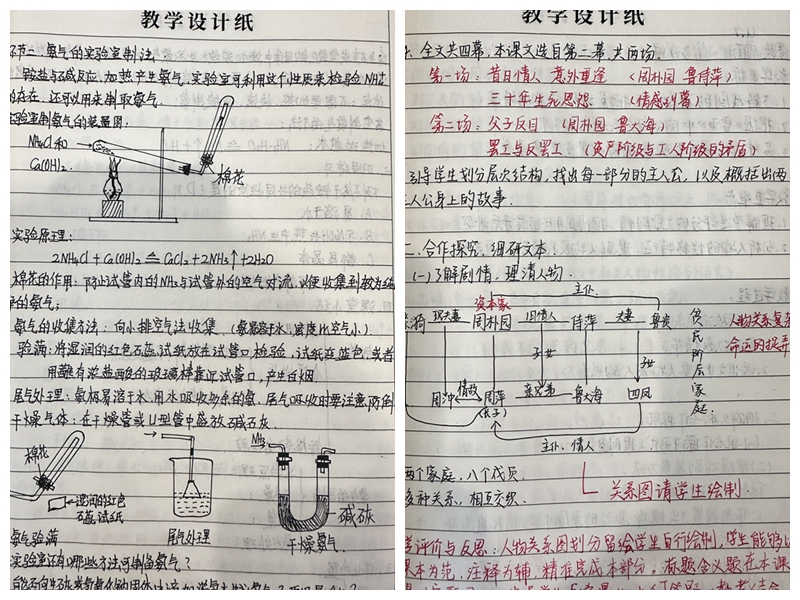 教学设计纸
环节二、氨气的实验室制法
铵盐与碱反应,加热产生氨气,实验室可利用这个性质来检验NH₄⁺
的存在,还可以用来制取氨气。
实验室制氨气的装置图:
NH₄Cl和
Ca(OH)₂
棉花
实验原理:
2NH₄Cl + Ca(OH)₂ ≙ CaCl₂ + 2NH₃↑ + 2H₂O
棉花的作用:防止试管内的NH₃与试管外的空气对流,以便收集到较为纯
净的氨气;
氨气的收集方法:向下排空气法收集(氨易溶于水,密度比空气小)
验满:将湿润的红色石蕊试纸放在试管口检验,试纸变蓝色,或者
用蘸有浓盐酸的玻璃棒靠近试管口,产生白烟。
尾气处理:氨极易溶于水,用水吸收多余的氨,尾气吸收时要注意防倒
干燥气体:在干燥管或U型管中盛放碱石灰
棉花
湿润的红色
石蕊试纸
NH₃
碱石灰
氨气验满
尾气处理
干燥氨气
实验室还有哪些方法可制备氨气?
教学设计纸
全文共四幕,本课文选自第二幕,共两场。
第一场:昔日情人 意外重逢 (周朴园 鲁侍萍)
三十年生死恩怨 (情感纠葛)
第二场:父子反目 (周朴园 鲁大海)
罢工与反罢工 (资产阶级与工人阶级的矛盾)
引导学生划分层次结构,找出每一部分的主人公,以及概括出两
主人公身上的故事。
二、合作探究,细研文本
(一)了解剧情,理清人物。
主仆
资本家
繁漪 现夫妻 周朴园 旧情人 侍萍 夫妻 鲁贵
子女
子女
周冲 情敌 周萍 亲兄弟 鲁大海 四凤
(长子)
主仆、情人
贫民阶层家庭
人物关系复杂
命运的捉弄
两个家庭,八个成员
多种关系,相互交织。
关系图请学生绘制
评价与反思:人物关系图划分留给学生自行绘制,学生能够以
课本为范,注释为辅,精准完成本部分。标题含义题在本课